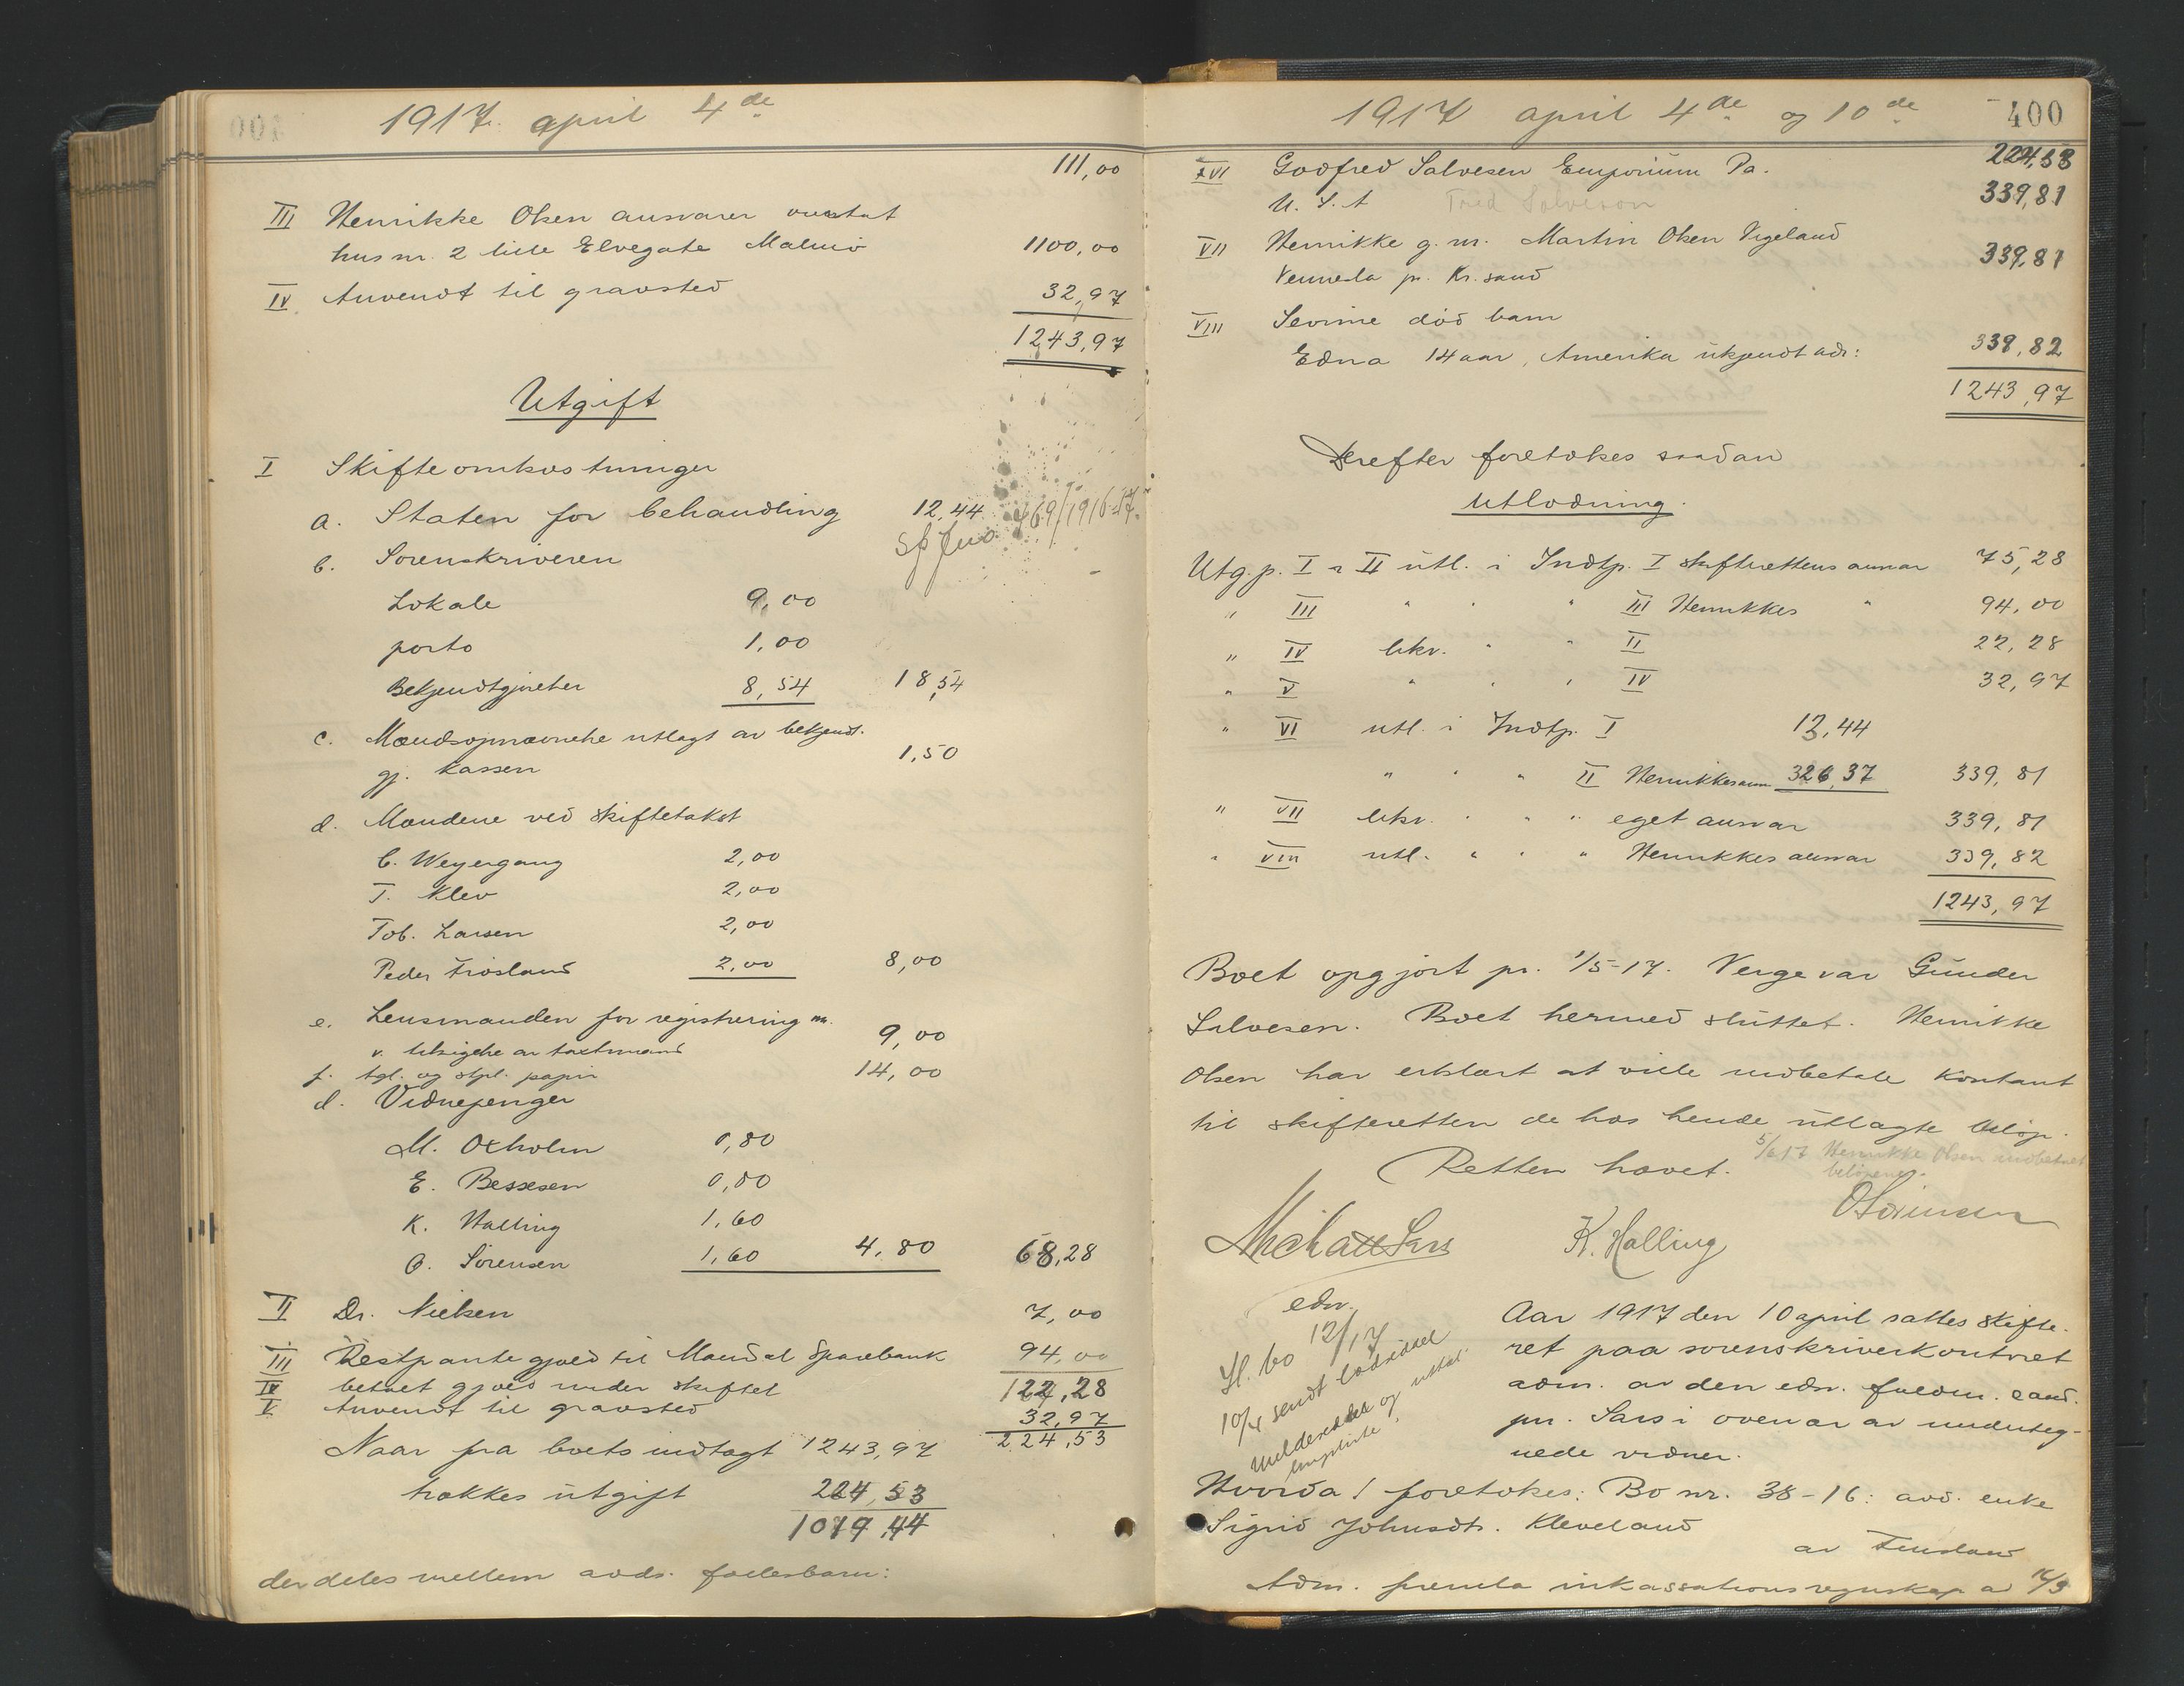 1917 april 4de
111,00
III Henrikke Olsen ansvarer overtat
hus nr. 2 lille Elvegate Malmö 1100,00
IV Anvendt til gravsted 32,97
1243,97
Utgift
I Skifteomkostninger
a. Staten for behandling 12,44 469/1916-17
b. Sorenskriveren
Lokale 9,00
porto 1,00
Bekjendtgjørelser 8,54 18,54
c. Mændsopnævnelse utlagt av bekjendt.
gj. kassen 1,50
d. Mændene ved skiftetakst
C. Weyergang 2,00
T. Klev 2,00
Tob. Larsen 2,00
Peder Frøsland 2,00 8,00
e. Lensmanden for registrering m.
v. tilsigelse av takstmænd 9,00
f. tgl. og stpl. papir 14,00
d. Vidnepenger
M. Oxholm 0,80
E. Bessesen 0,80
K. Halling 1,60
O. Sörensen 1,60 4,80 68,28
II Dr. Nielsen 7,00
III Restpantegjæld til Mandal Sparebank 94,00
IV betalt gjæld under skiftet 122,28
V Anvendt til gravsted 32,97
224,53
Naar fra boets indtægt 1243,97
trækkes utgift 224,53
1019,44
der deles mellem avds. fællesbarn:
1917 april 4de og 10de 400
224,53
VI Godfred Salvesen Emporium Pa.
U. S. A Fred Salveson 339,81
VII Henrikke g. m. Martin Olsen Vigeland
Vennesla pr. Kr.sand 339,81
VIII Sevrine död barn
Edna 14 aar, Amerika ukjendt adr: 339,82
1243,97
Derefter foretokes saadan
Utlodning.
Utg.p. I & II utl. i Indtp. I skifterettens ansvar 75,28
" III " " " III Henrikkes " 94,00
" IV likv. " " II 22,28
" V " " " IV 32,97
" VI utl. i Indtp. I 13,44
" " " II Henrikkes ansv. 326,37 339,81
" VII likv. " " " eget ansvar 339,81
" VIII utl. " " " Henrikkes ansvar 339,82
1243,97
Boet opgjort pr. 1/5-17. Verge var Gunder
Salvesen. Boet hermed sluttet. Henrikke
Olsen har erklært at ville indbetale kontant
til skifteretten de hos hende utlagte beløp.
5/6 17 Henrikke Olsen indbetalt
beløpene.
Retten hævet.
O Sörensen
Michael Sars K. Halling
edsv.
H. bo 12/17
10/4 sendt lodseddel
meldeseddel og utlod-
ningsliste.
Aar 1917 den 10 april sattes skifte-
ret paa sorenskriverkontoret
adm. av den edsv. fuldm. cand.
jur. Sars i overvær av underteg-
nede vidner.
Hvorda! foretokes: Bo nr. 38-16: avd. enke
Sigrid Johnsdtr. Kleveland
av Finsland
Adm. fremla inkassationsregnskap av